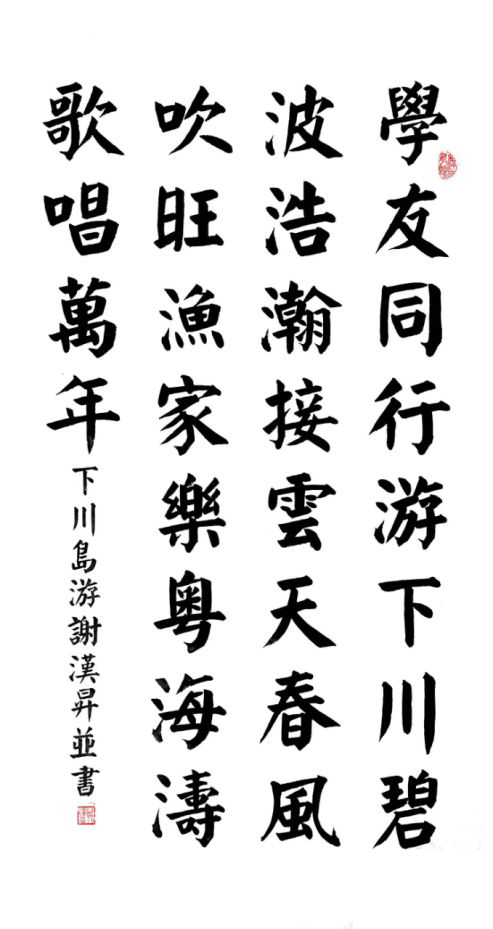 學友同行游下川碧
波浩瀚接雲天春風
吹旺漁家樂粤海濤
歌唱萬年
下川島游謝漢昇並書